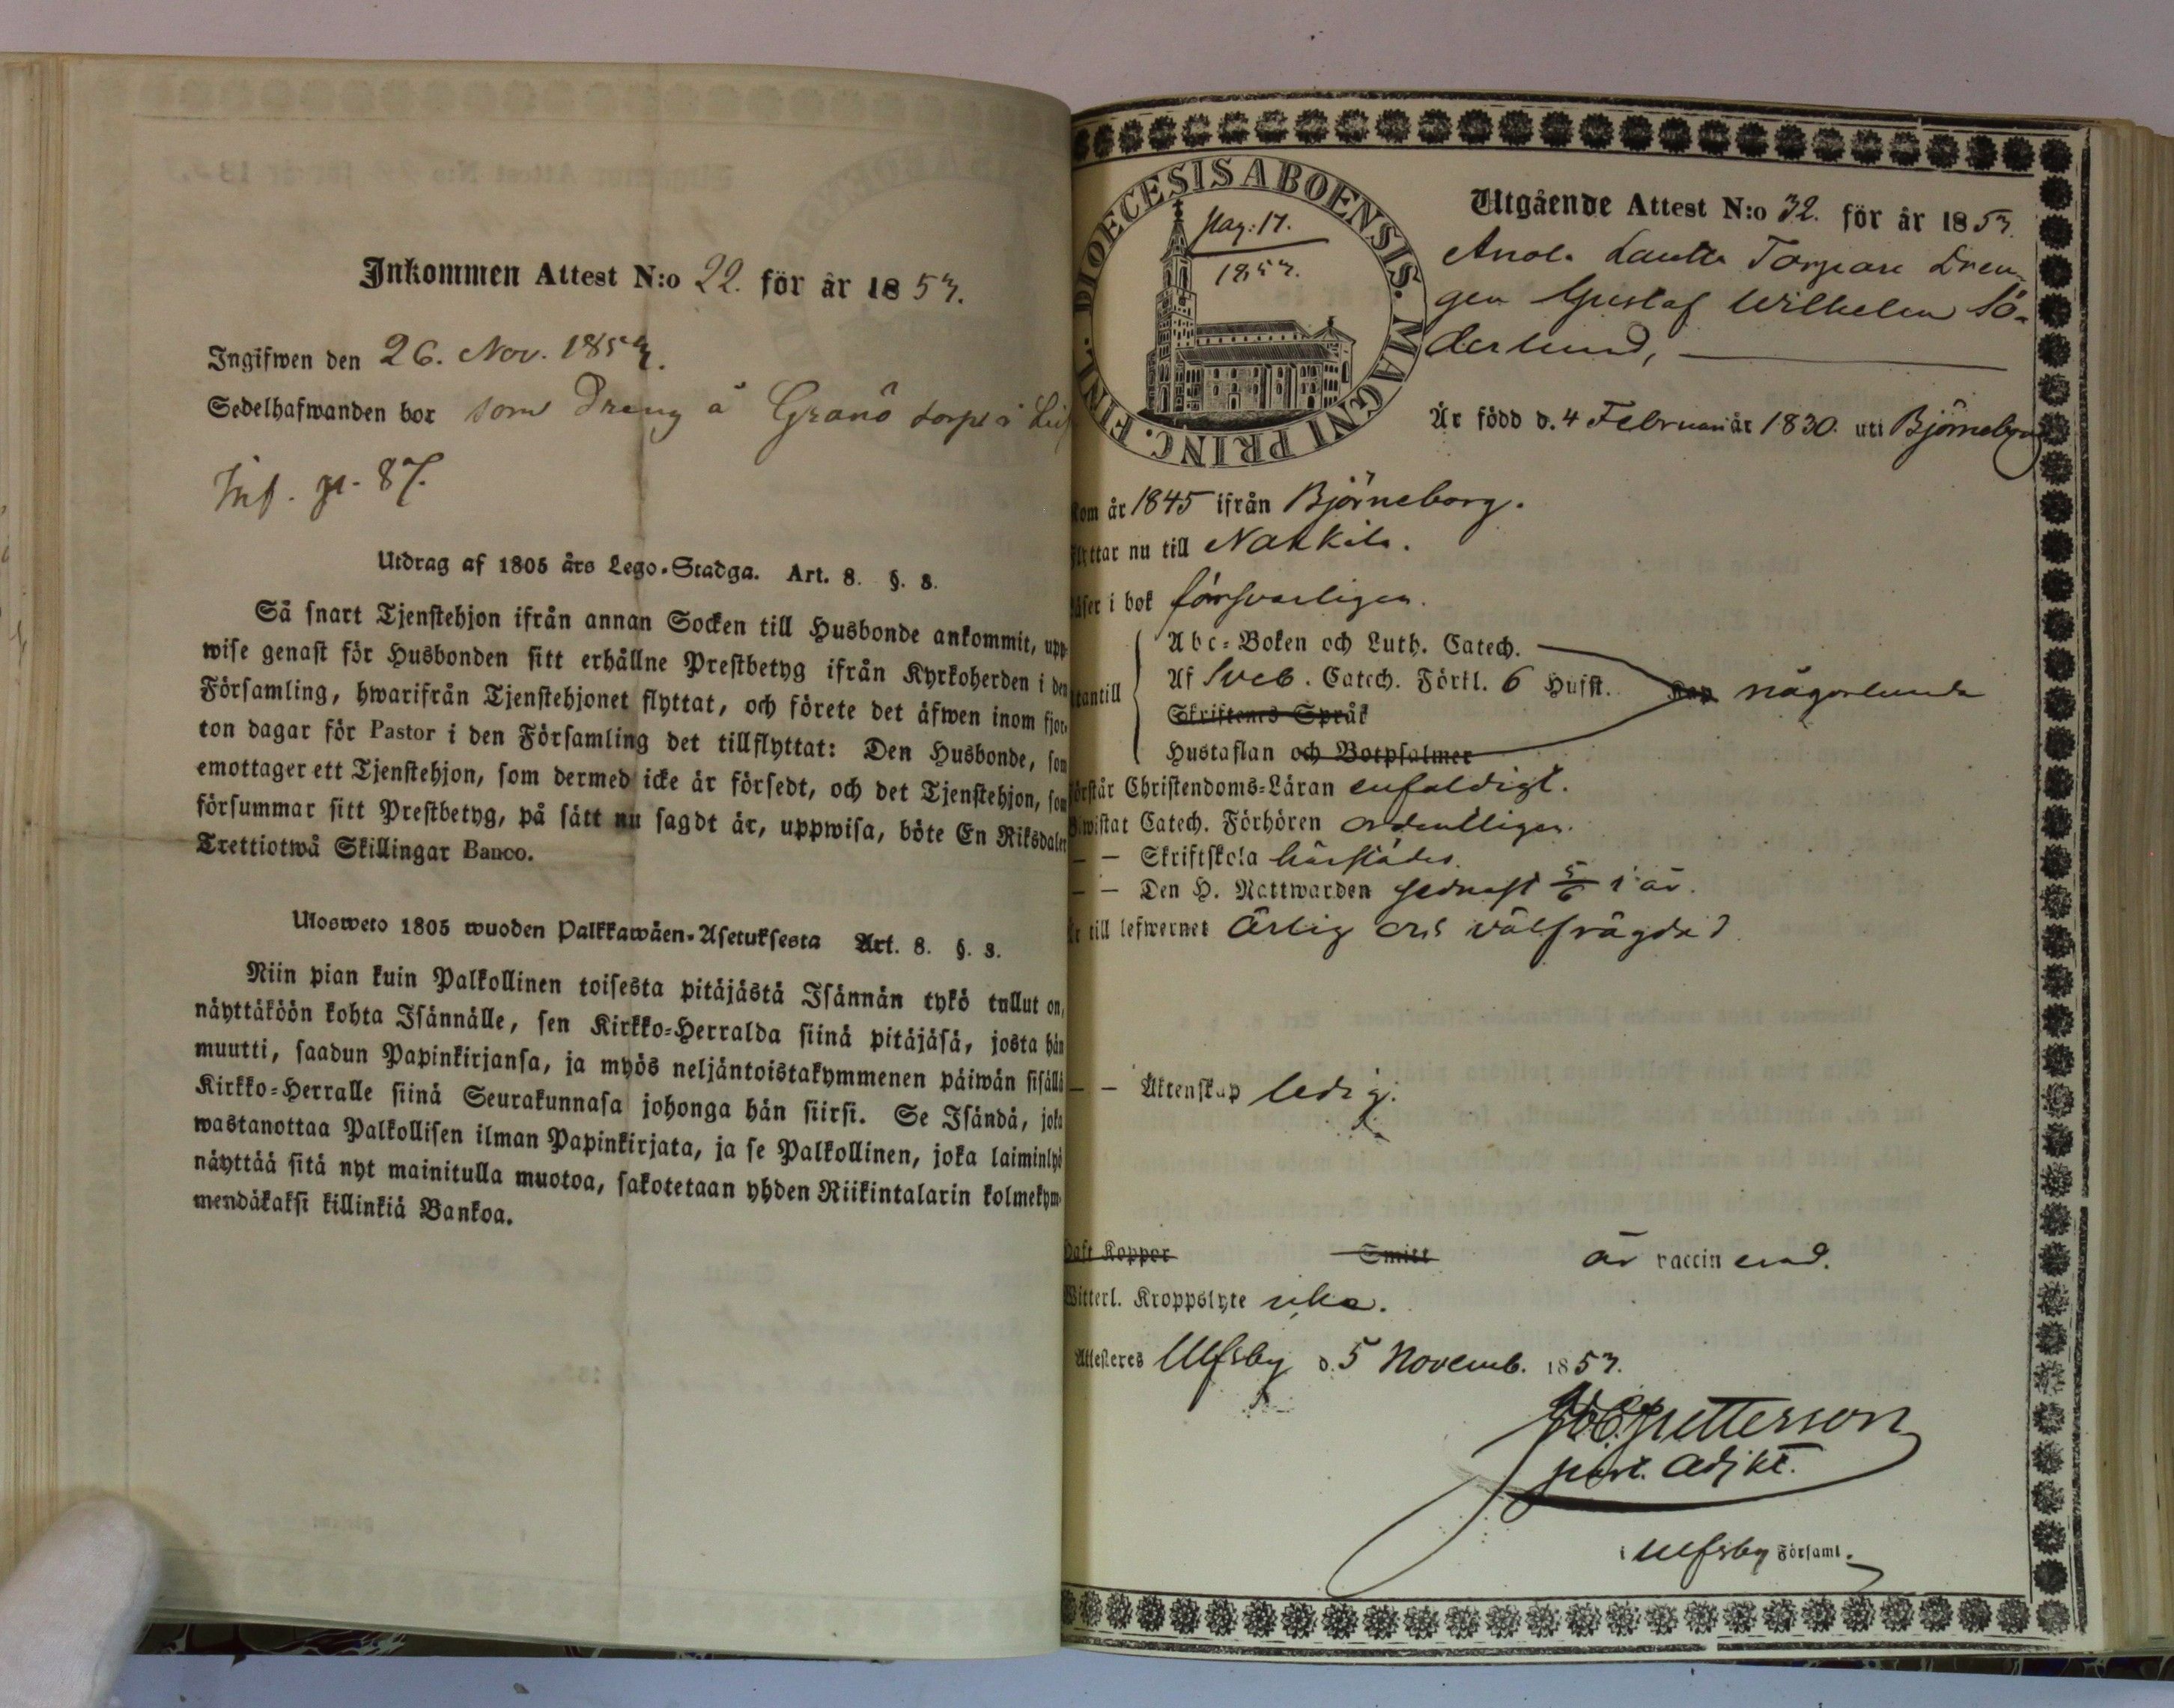 Inkommen Attest N:o 22. för år 1853.
Ingifwen den 26. Nov. 1853.
Sedelhafwanden bor som Dreng å Granö torp i
Inf. p. 87.
Utdrag af 1805 års Lego-Stadga. Art. 8. §. 8.
Så snart Tjenstehjon ifrån annan Socken till Husbonde ankommit, upp-
wise genast för Husbonden sitt erhållne Prestbetyg ifrån Kyrkoherden i den
Församling, hwarifrån Tjenstehjonet flyttat, och förete det äfwen inom fjor-
ton dagar för Pastor i den Församling det tillflyttat: Den Husbonde, som
emottager ett Tjenstehjon, som dermed icke är försedt, och det Tjenstehjon, som
försummar sitt Prestbetyg, på sätt nu sagdt är, uppwisa, böte En Riksdaler
Trettiotwå Skillingar Banco.
Ulosweto 1805 wuoden Palkkawäen-Asetuksesta Art. 8. §. 8.
Niin pian kuin Palkollinen toisesta pitäjästä Isännän tykö tullut on,
näyttäköön kohta Isännälle, sen Kirkko-Herralda siinä pitäjäsä, josta hän
muutti, saadun Papinkirjansa, ja myös neljäntoistakymmenen päiwän sisällä
Kirkko-Herralle siinä Seurakunnasa johonga hän siirsi. Se Isändä, joka
wastanottaa Palkollisen ilman Papinkirjata, ja se Palkollinen, joka laiminlyö
näyttää sitä nyt mainitulla muotoa, sakotetaan yhden Riikintalarin kolmekym-
mendäkaksi killinkiä Bankoa.
DIOECESIS ABOENSIS. MAGNI PRINC. FINL.
pag: 17.
1853.
Utgående Attest N:o 32. för år 1853.
Torpare Dren-
gen Gustaf Wilhelm Sö-
derlund,
Är född d. 4 Februari år 1830. uti Björneborg
Kom år 1845 ifrån Björneborg.
Flyttar nu till Nakkila.
Läser i bok försvarligen.
Abc-Boken och Luth. Catech.
utantill Af Sveb. Catech. Förkl. 6 Hufst. någorlunda
Skriftenes Språk
Hustaflan och Botpsalmer
Förstår Christendoms-Läran enfaldigt.
Biwistat Catech. Förhören ordentligen.
— — Skriftskola härstädes.
— — Den H. Nattwarden sednast 5/6 i år.
Är till lefwernet ärlig och välfrägdad
— — Äktenskap ledig.
Haft Koppor Smitt är vaccinerad.
Witterl. Kroppslyte utan.
Attesteres Ulfsby d. 5 Novemb. 1853.
Petterson
past. adjkt.
i Ulfsby Församl.